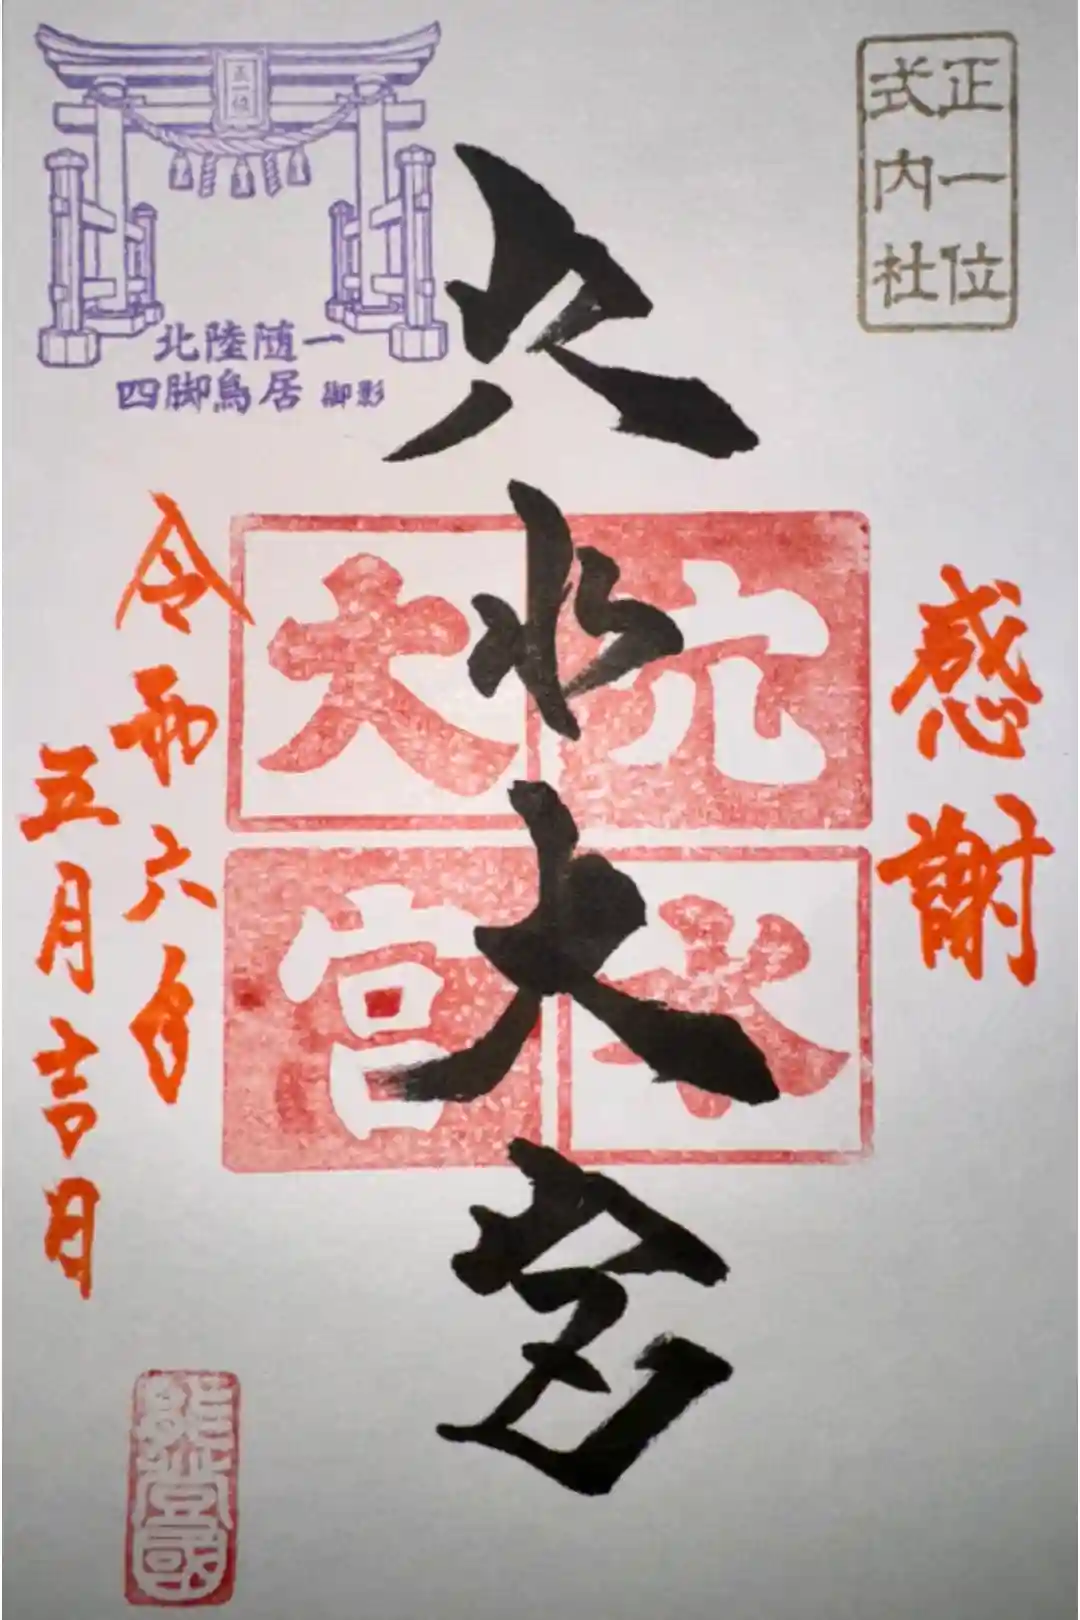 正一位
式内社
感謝
穴水大宮
穴水
大宮
正一位
北陸随一
四脚鳥居 御影
令和六年
五月吉日
能登國